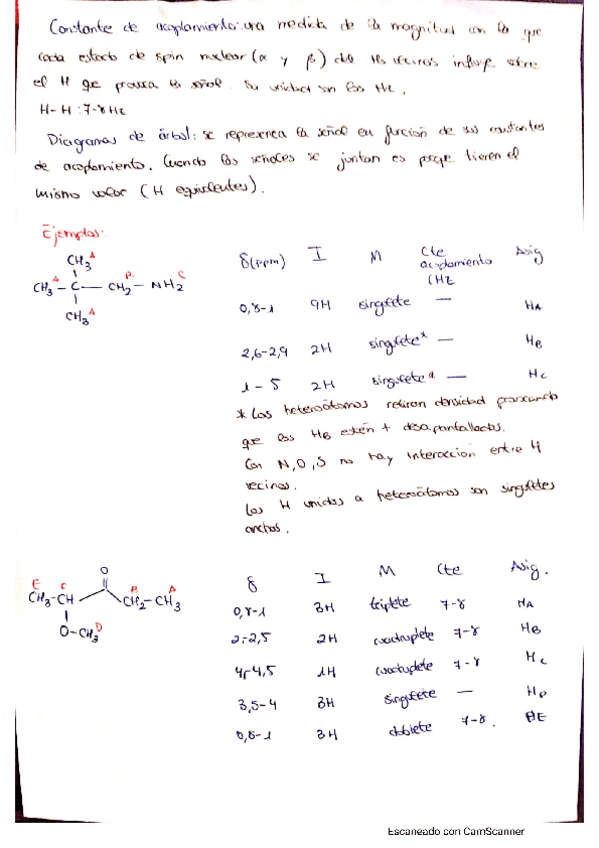 Constante de acoplamiento: una medida de la magnitud con la que
cada estado de spin nuclear (α y β) del H vecinos influye sobre
el H que provoca la señal. Su unidad son los Hz.
H-H: 7-8Hz
Diagramas de árbol: se representa la señal en función de sus constantes
de acoplamiento. Cuando las señales se juntan es porque tienen el
mismo valor (H equivalentes).
Ejemplos:
CH3 A
CH3 A - C - CH2 B - NH2 C
CH3 A
δ(ppm) I M Cte acoplamiento (Hz Asig
0,8-1 9H singlete — HA
2,6-2,9 2H singlete* — HB
1-5 2H singlete* — HC
* Los heteroátomos retiran densidad provocando
que los HB estén + desapantallados.
Con N, O, S no hay interacción entre H
vecinos.
Los H unidos a heteroátomos son singletes
anchos.
O
E C B A
CH3-CH CH2-CH3
O-CH3 D
δ I M Cte Asig.
0,8-1 3H triplete 7-8 HA
2-2,5 2H cuadruplete 7-8 HB
4-4,5 1H cuadruplete 7-8 HC
3,5-4 3H singlete — HD
0,8-1 3H doblete 7-8. HE
Escaneado con CamScanner